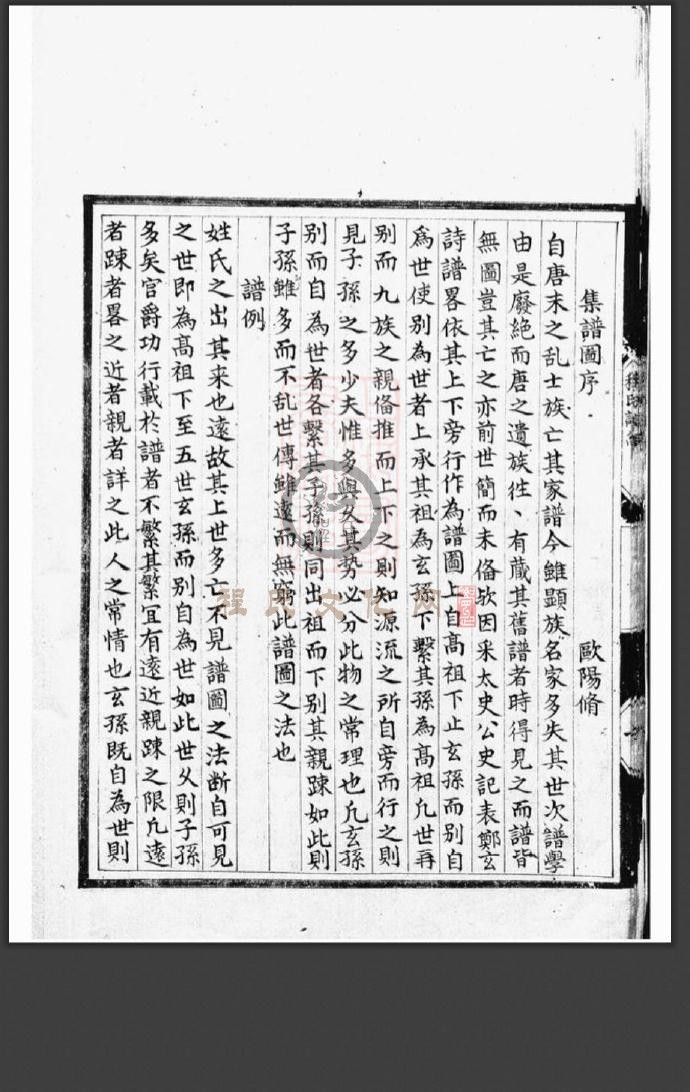 集譜圖序 歐陽脩
自唐末之乱士族亡其家譜今雖顕族名家多失其世次譜學
由是廢絕而唐之遺族徃丶有藏其舊譜者時得見之而譜皆
無圖豈其亡之亦前世簡而未俻欤因采太史公史記表鄭玄
詩譜畧依其上下旁行作為譜圖上自髙祖下止玄孫而别自
為世使别為世者上承其祖為玄孫下繫其孫為髙祖凢世再
别而九族之親俻推而上下之則知源流之所自旁而行之則
見子孫之多少夫惟多與久其势必分此物之常理也凢玄孫
别而自為世者各繫其子孫則同出祖而下别其親踈如此則
子孫雖多而不乱世傳雖遠而無窮此譜圖之法也
譜例
姓氏之出其来也遠故其上世多亡不見譜圖之法断自可見
之世即為髙祖下至五世玄孫而别自為世如此世乆則子孫
多矣官爵功行載於譜者不繁其繁冝有遠近親踈之限凢遠
者踈者畧之近者親者詳之此人之常情也玄孫既自為世則
程氏文化网